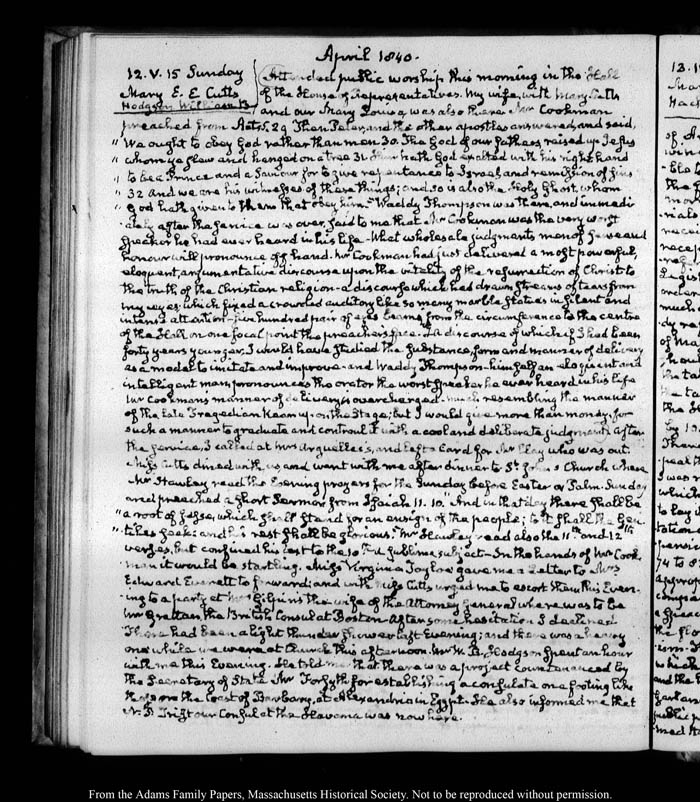 April 1840.
12. V. 15 Sunday
Mary E. E. Cutts
Hodgson William B.
Attended public worship this morning in the Hall
of the House of Representatives. My wife, with Mary Cutts
and our Mary Louisa, was also there Mr Cookman
preached from Acts 5, 29 Then Peter and the other apostles answered, and said,
" We ought to obey God rather than men 30. The God of our fathers raised up Jesus
" whom ye slew and hanged on a tree 31. Him hath God exalted with his right hand
" to be a Prince and a Saviour for to give repentance to Israel, and remission of sins
" 32 And we are his witnesses of these things; and so is also the Holy Ghost, whom
" God hath given to them that obey him." Waddy Thompson was there, and immedi-
ately after the service was over, said to me that Mr Cookman was the very worst
speaker he had ever heard in his life. What wholesale judgments men of sense and
honour will pronounce off hand. Mr Cookman had just delivered a most powerful,
eloquent, argumentative discourse upon the vitality of the resurrection of Christ to
the truth of the Christian religion - a discourse which had drawn streams of tears from
my eyes; which fixed a crowded auditory like so many marble statues in silent and
intense attention - five hundred pair of eyes beaming from the circumference to the centre
of the Hall on one focal point the preachers face. A discourse of which if I had been
forty years younger, I would have studied the substance, form and manner of delivery
as a model to imitate and improve - and Waddy Thompson - himself an eloquent and
intelligent man, pronounces the orator the worst speaker he ever heard in his life
Mr Cookmans manner of delivery is overcharged - much resembling the manner
of the late Tragedian Kean upon the Stage; but I would give more than money, for
such a manner to graduate and controul it with a cool and deliberate judgment. After
the service, I called at Mrs Arguelles's, and left a Card for Mr Clay who was out.
Miss Cutts dined with us, and went with me after dinner to St. John's Church where
Mr Hawley read the Evening prayers for the Sunday before Easter or Palm Sunday
and preached a short Sermon from Isaiah 11. 10. "And in that day there shall be
" a root of Jesse, which shall stand for an ensign of the people; to it shall the Gen-
" tiles seek: and his rest shall be glorious." Mr Hawley read also the 11th and 12th
verses, but confined his text to the 10th A sublime subject - In the hands of Mr Cook-
man it would be startling. Miss Virginia Taylor gave me a Letter to Mrs
Edward Everett to forward; and with Miss Cutts urged me to escort them this Even-
ing to a party at Mrs Gilpin's the wife of the Attorney General where was to be
Mr Grattan the British Consul at Boston - After some hesitation I declined
There had been a light thunder shower last Evening; and there was a heavy
one while we were at Church this afternoon. Mr W. B. Hodgson spent an hour
with me this Evening. He told me that there was a project countenanced by
the Secretary of State Mr Forsyth for establishing a consulate on a footing like
those on the Coast of Barbary, at Alexandria in Egypt. He also informed me that
N. P. Trist our Consul at the Havanna was now here.
From the Adams Family Papers, Massachusetts Historical Society. Not to be reproduced without permission.